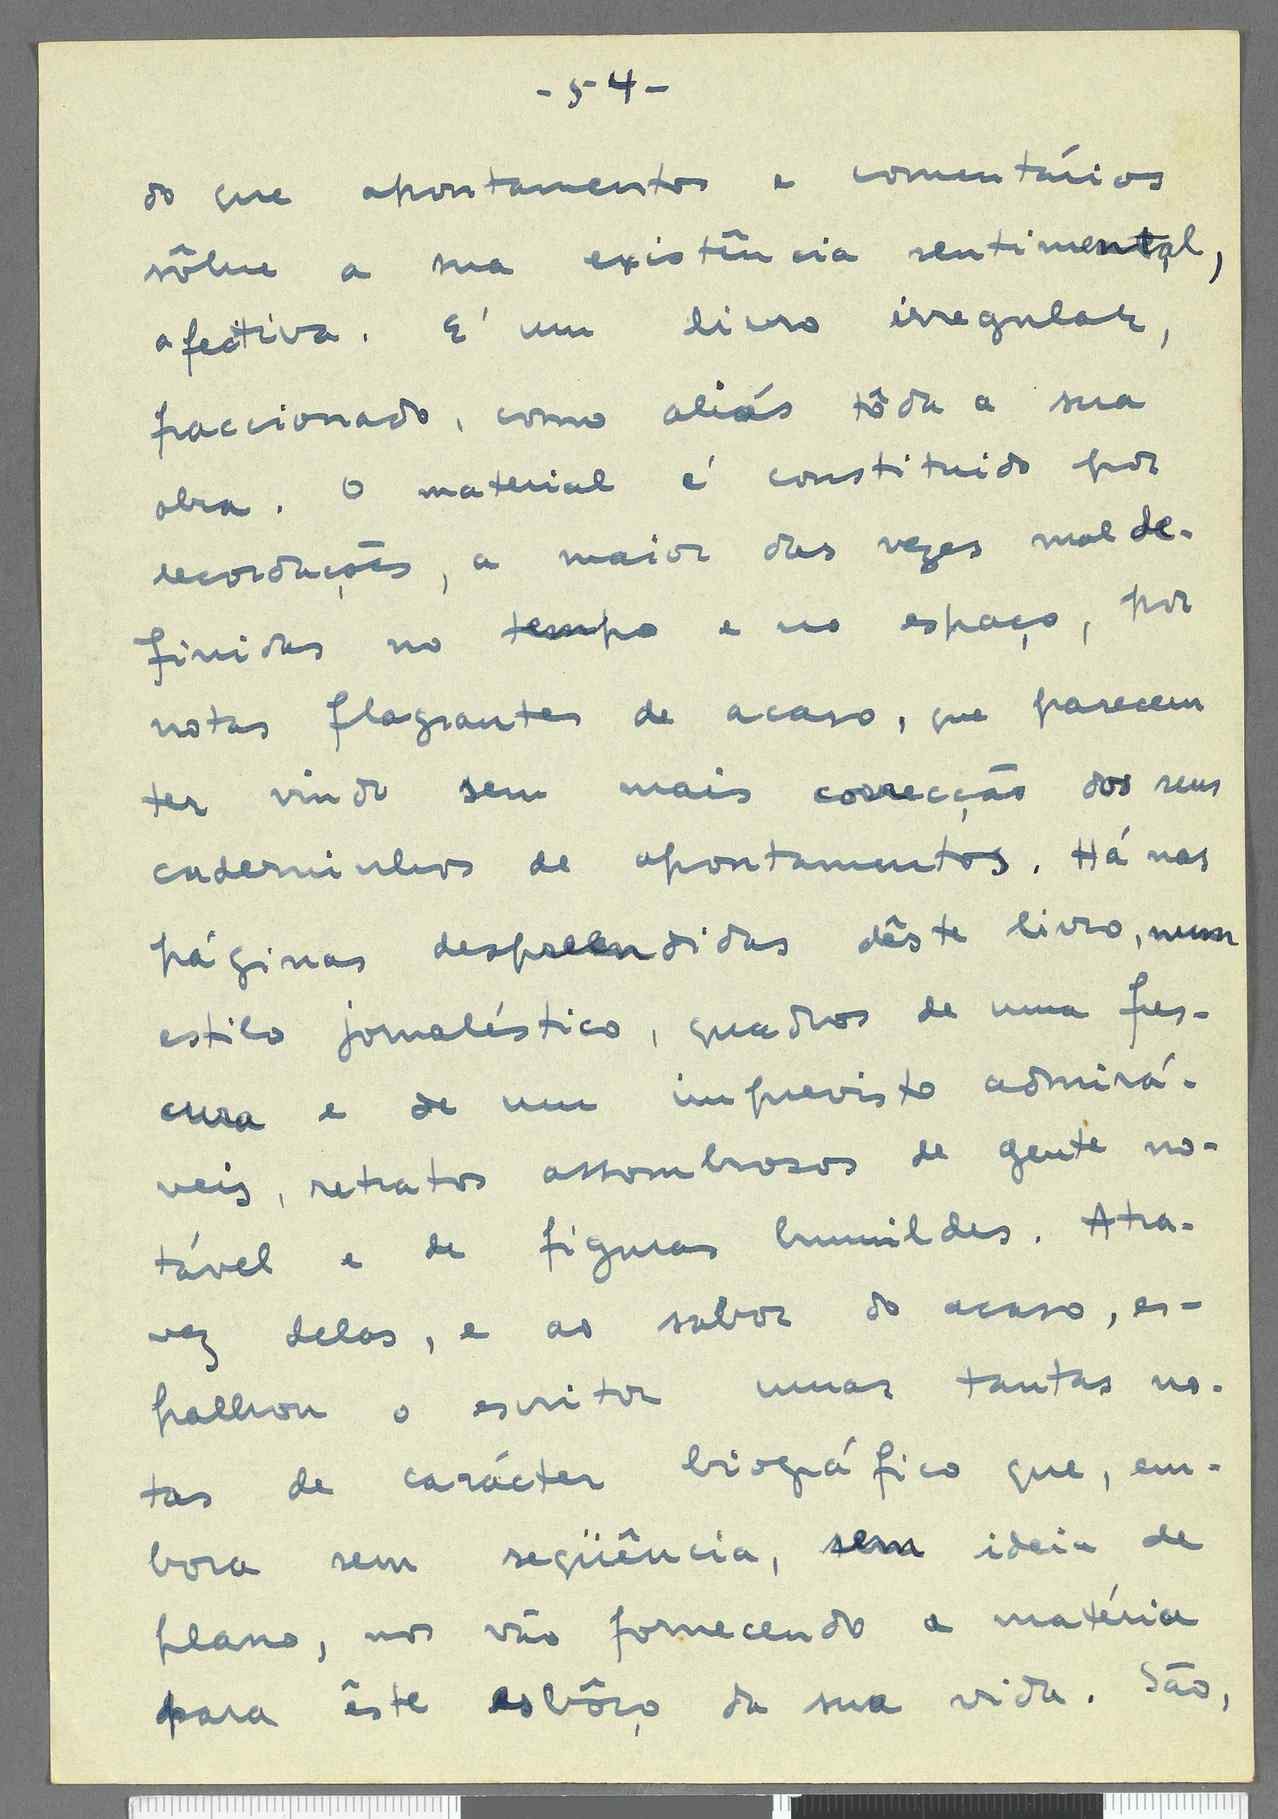 - 54 -
do que apontamentos e comentários
sôbre a sua existência sentimental,
afectiva. E' um livro irregular,
fraccionado, como aliás tôda a sua
obra. O material é constituido por
recordações, a maior das vezes mal de-
finidas no tempo e no espaço, por
notas flagrantes de acaso, que parecem
ter vindo sem mais correcção dos seus
caderninhos de apontamentos. Há nas
páginas despreendidas dêste livro, num
estilo jornaléstico, quadros de uma fres-
cura e de um imprevisto admirá-
veis, retratos assombrosos de gente no-
tável e de figuras humildes. Atra-
vez delas, e ao sabor do acaso, es-
palhou o escritor umas tantas no-
tas de carácter biográfico que, em-
bora sem seqüência, sem ideia de
plano, nos vão fornecendo a matéria
para êste esbôço da sua vida. São,